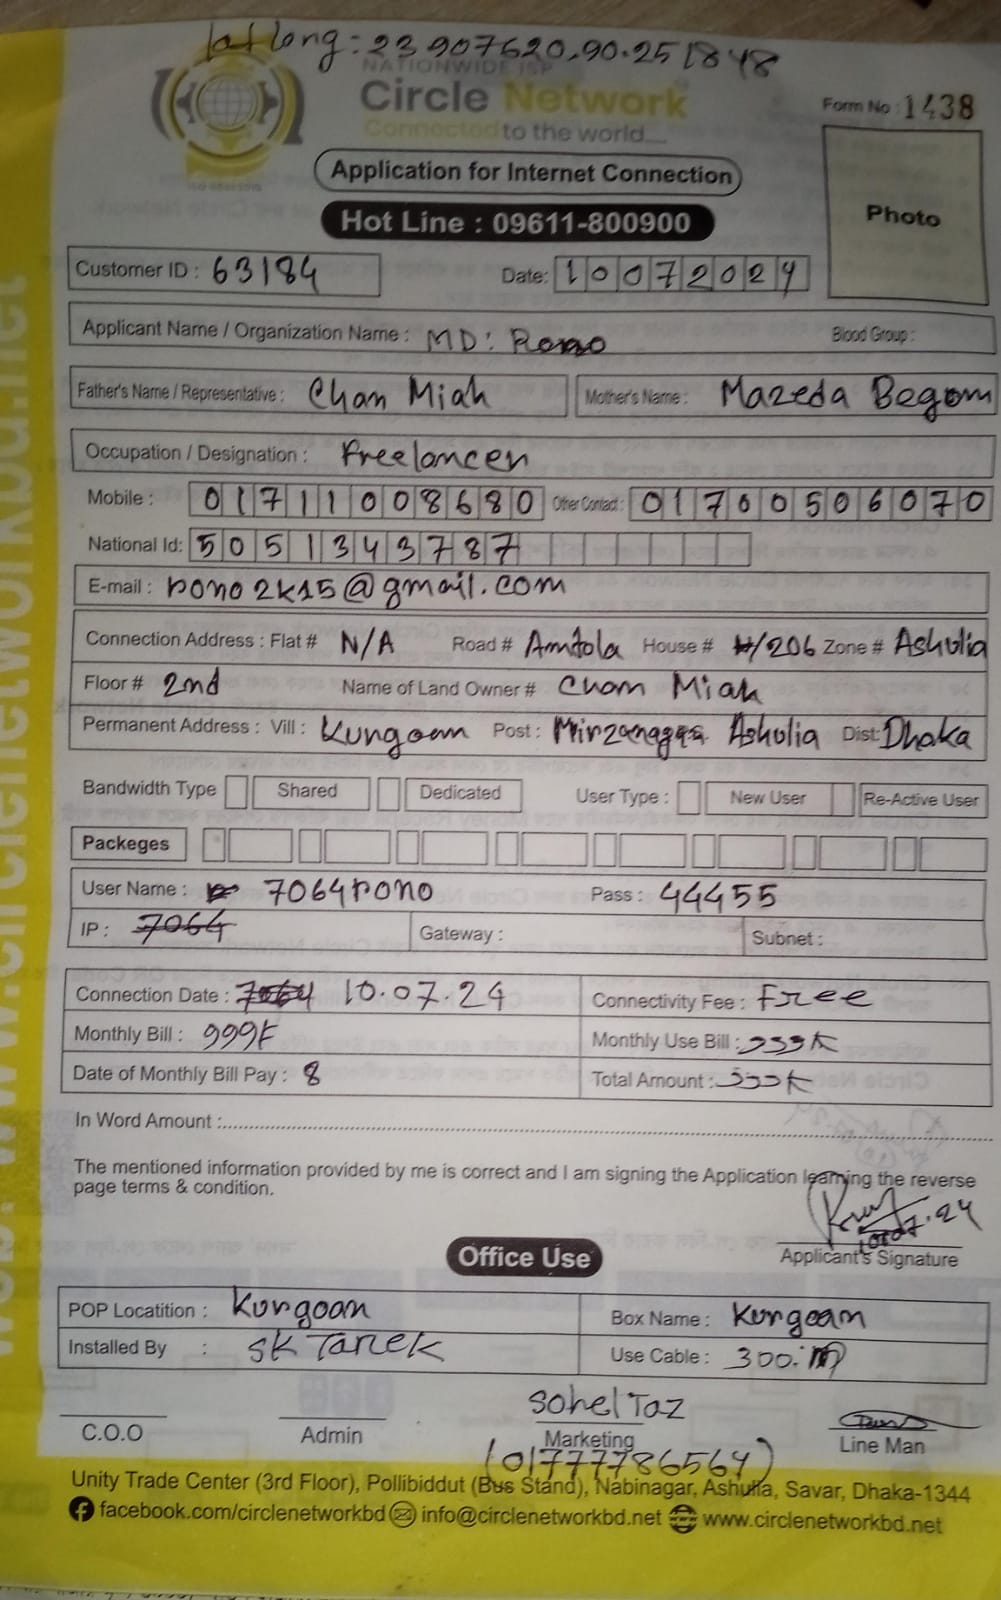 lat long : 23.907620,90.251848
NATIONWIDE ISP
Circle Network
Connected to the world....
Form No : 1438
Application for Internet Connection
Hot Line : 09611-800900
Photo
Customer ID : 63184
Date: 10072024
Applicant Name / Organization Name : MD: Rono
Blood Group :
Father's Name / Representative : Chan Miah
Mother's Name : Mazeda Begom
Occupation / Designation : Freelancer
Mobile : 01711008680 Other Contact : 01700506070
National Id: 5051343787
E-mail : rono2k15@gmail.com
Connection Address : Flat # N/A Road # Amtola House # /206 Zone # Ashulia
Floor # 2nd Name of Land Owner # Chan Miah
Permanent Address : Vill : Kurgoan Post : Mirzanagar Ashulia Dist: Dhaka
Bandwidth Type Shared Dedicated User Type : New User Re-Active User
Packeges
User Name : 7064rono Pass : 44455
IP : 7064 Gateway : Subnet :
Connection Date : 10.07.24 Connectivity Fee : Free
Monthly Bill : 999t Monthly Use Bill : 999t
Date of Monthly Bill Pay : 8 Total Amount : 999t
In Word Amount :
The mentioned information provided by me is correct and I am signing the Application learning the reverse
page terms & condition.
10.07.24
Applicant's Signature
Office Use
POP Locatition : Kurgoan Box Name : Kurgoan
Installed By : SK Tarek Use Cable : 300.m
Sohel Taz
C.O.O Admin Marketing Line Man
(01777786564)
Unity Trade Center (3rd Floor), Pollibiddut (Bus Stand), Nabinagar, Ashulia, Savar, Dhaka-1344
facebook.com/circlenetworkbd info@circlenetworkbd.net www.circlenetworkbd.net